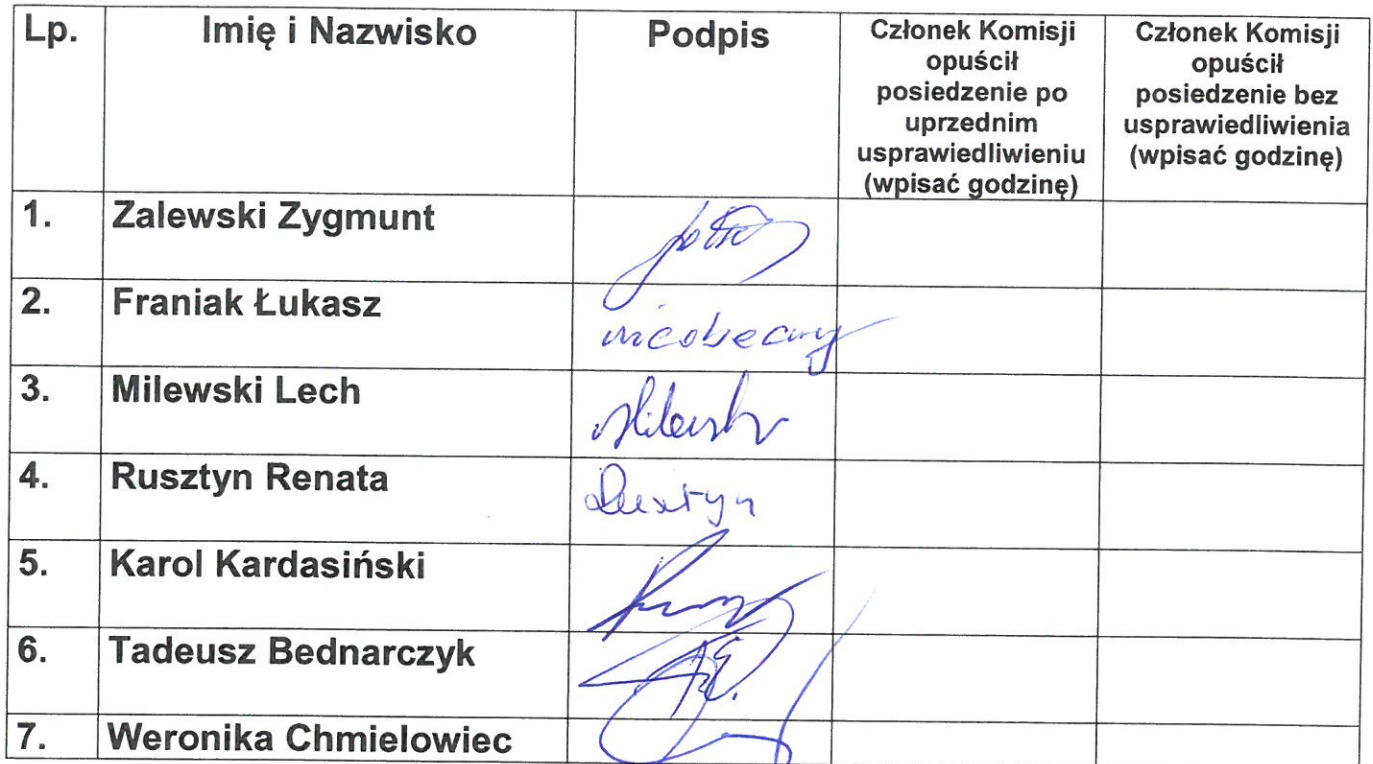 Lp. Imię i Nazwisko Podpis Członek Komisji opuścił posiedzenie po uprzednim usprawiedliwieniu (wpisać godzinę) Członek Komisji opuścił posiedzenie bez usprawiedliwienia (wpisać godzinę)
1. Zalewski Zygmunt
2. Franiak Łukasz nieobecny
3. Milewski Lech Milewski
4. Rusztyn Renata Rusztyn
5. Karol Kardasiński
6. Tadeusz Bednarczyk
7. Weronika Chmielowiec